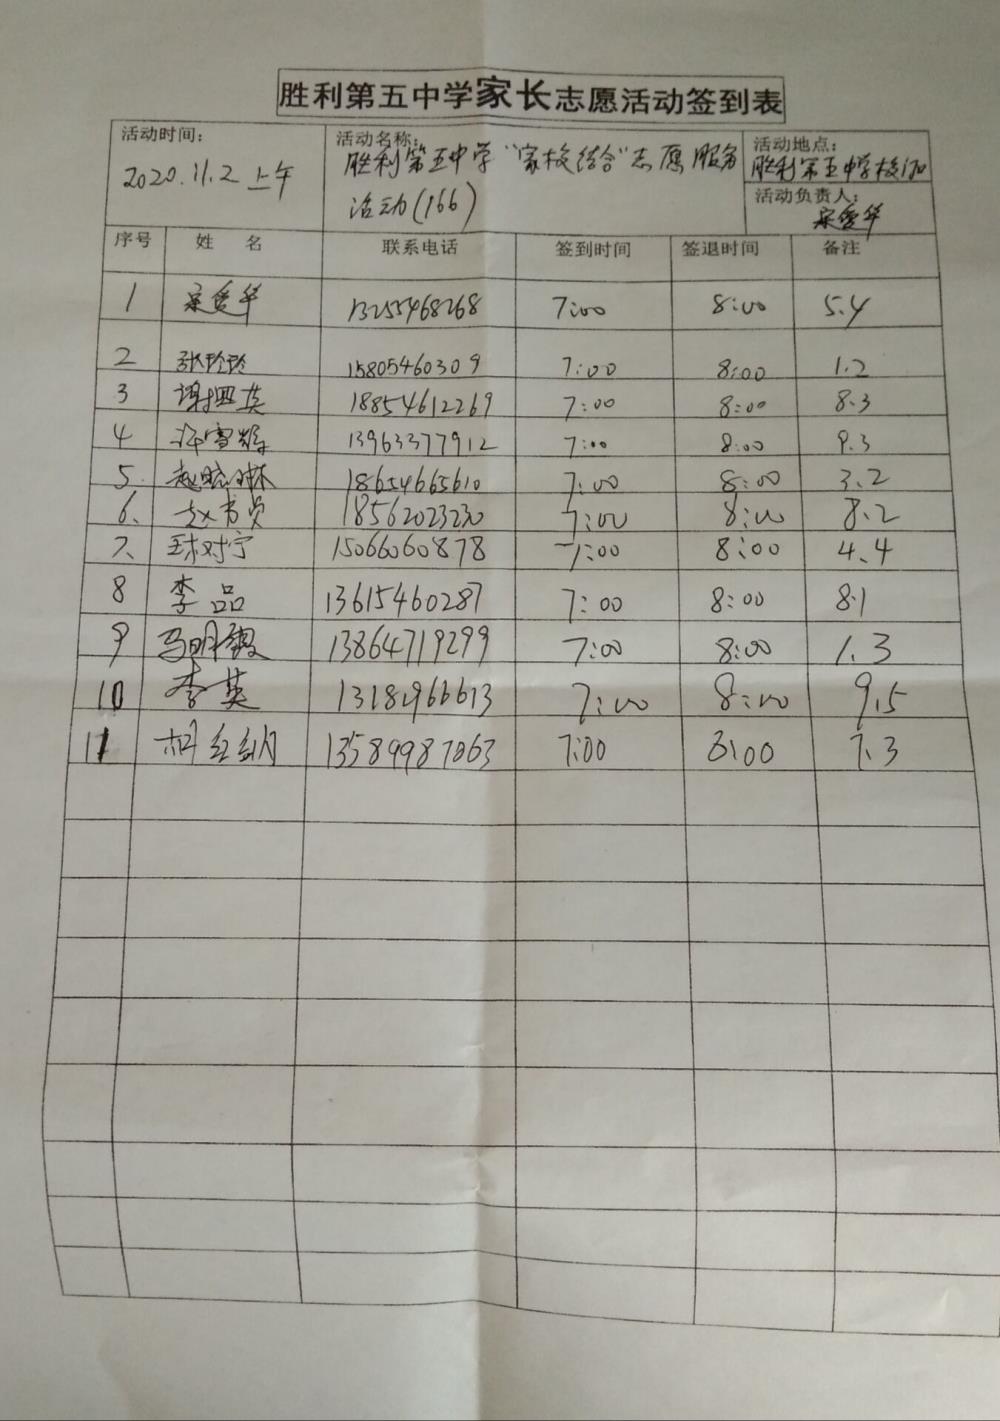 胜利第五中学家长志愿活动签到表
活动时间：
2020.11.2 上午
活动名称：
胜利第五中学“家校结合”志愿服务
活动(166)
活动地点：
胜利第五中学校门口
活动负责人：
序号 姓名 联系电话 签到时间 签退时间 备注
1 13255468268 7:00 8:00 5.4
2 张玲玲 15805460309 7:00 8:00 1.2
3 18854612269 7:00 8:00 8.3
4 13963377912 7:00 8:00 9.3
5. 赵晓琳 18654665610 7:00 8:00 3.2
6、 18562023230 7:00 8:00 8.2
7、 15066060878 7:00 8:00 4.4
8 李品 13615460287 7:00 8:00 8.1
9 13864719299 7:00 8:00 1.3
10 李英 13181966613 7:00 8:00 9.5
11 13589987063 7:00 8:00 7.3